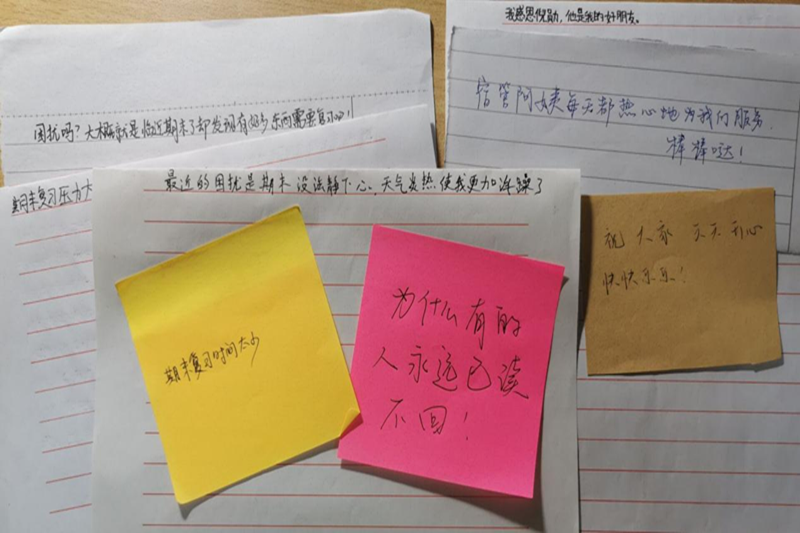 我感恩倪勋，他是我的好朋友。
宿管阿姨每天都热心地为我们服务，
棒棒哒！
困扰吗？大概就是临近期末了却发现有好多东西需要复习吧！
期末复习压力大
最近的困扰是期末没法静下心，天气炎热使我更加浮躁了
祝大家天天开心
快快乐乐！
期末复习时间太少
为什么有的
人永远已读
不回！